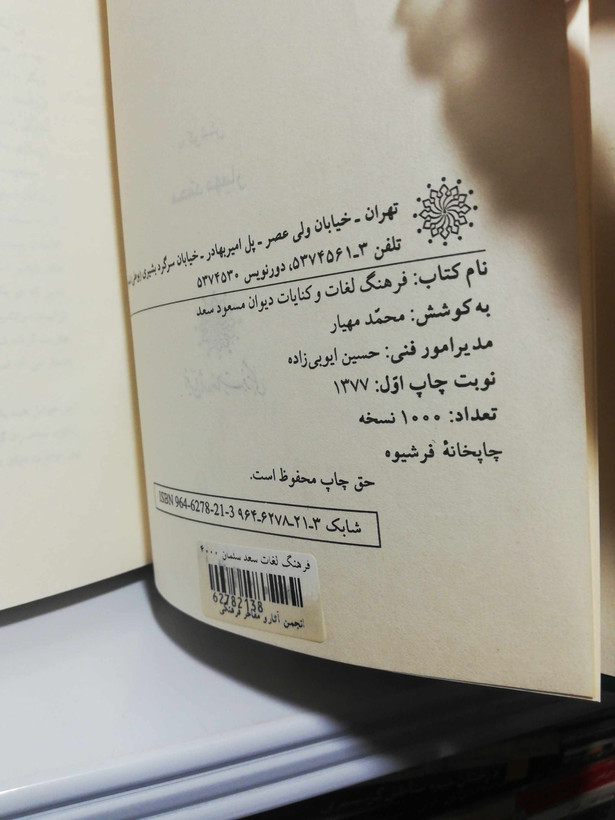 تهران ـ خیابان ولی عصر ـ پل امیربهادر ـ خیابان سرگرد بشیری
تلفن ۳ـ۵۳۷۴۵۶۱، دورنویس ۵۳۷۴۵۳۰
نام کتاب: فرهنگ لغات و کنایات دیوان مسعود سعد
به کوشش: محمّد مهیار
مدیر امور فنی: حسین ایوبی‌زاده
نوبت چاپ اوّل: ۱۳۷۷
تعداد: ۱۰۰۰ نسخه
چاپخانهٔ فرشیوه
حق چاپ محفوظ است.
شابک ۳ـ۲۱ـ۶۲۷۸ـ۹۶۴ ISBN 964-6278-21-3
فرهنگ لغات سعد سلمان ۴۰۰۰
62782138
انجمن آثار و مفاخر فرهنگی